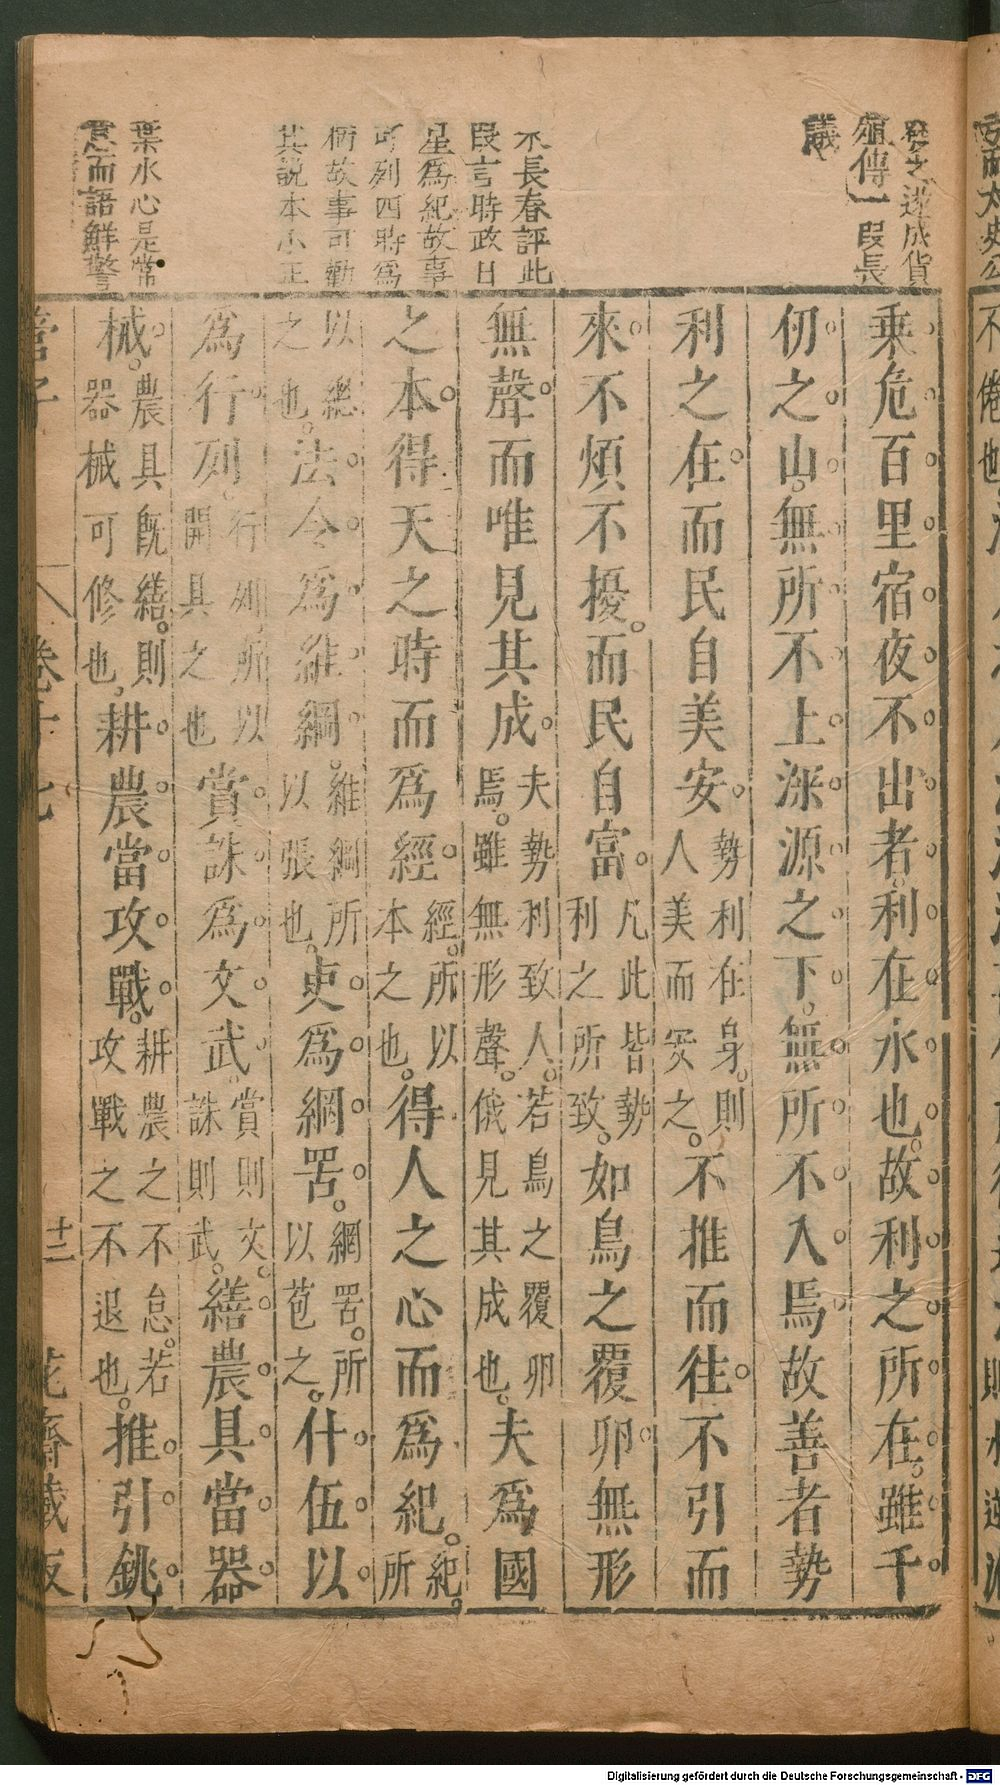 發之遂成貨
殖傳一段長
議
朱長春評此
段言時政日
星爲紀故事
可列四時爲
柄故事可勸
其說本小正
葉水心是常
意而語鮮警
乗危百里宿夜不出者利在水也故利之所在雖千
仞之山無所不上深源之下無所不入焉故善者勢
利之在而民自美安勢利在身則人美而安之不推而往不引而
來不煩不擾而民自富凡此皆勢利之所致如鳥之覆卵無形
無聲而唯見其成夫勢利致人若鳥之覆卵焉雖無形聲俄見其成也夫爲國
之本得天之時而爲經經所以本之也得人之心而爲紀紀所
以總之也法令爲維綱維綱所以張也吏爲網罟網罟所以苞之什伍以
爲行列行列所以開具之也賞誅爲文武賞則文誅則武繕農具當器
械農具既繕則器械可修也耕農當攻戰耕農之不怠若攻戰之不退也推引銚
管子
卷十七
十二
花齋藏板
不倦也
Digitalisierung gefördert durch die Deutsche Forschungsgemeinschaft - DFG